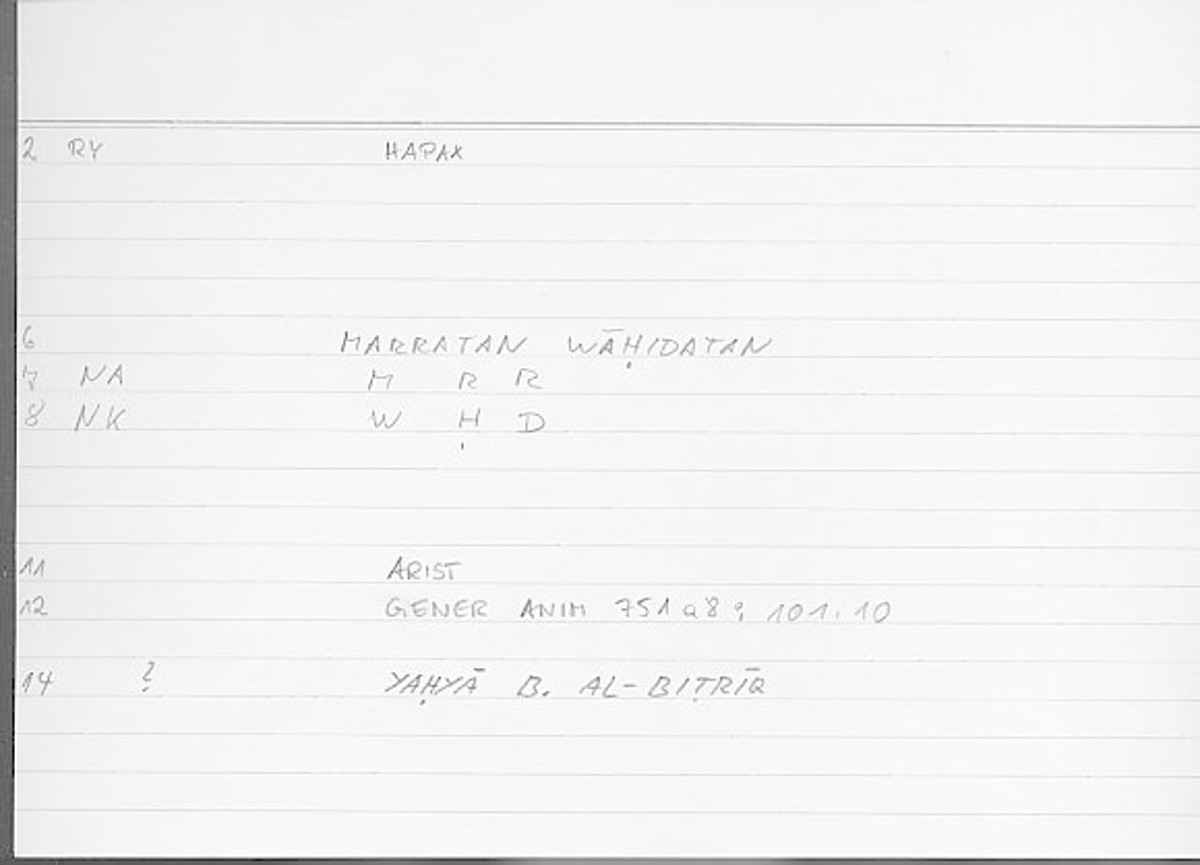 2 RY HAPAX
6 MARRATAN WĀḤIDATAN
7 NA M R R
8 NK W Ḥ D
11 ARIST
12 GENER ANIM 751 a 8 ; 101.10
14 ? YAḤYĀ B. AL-BIṬRĪQ